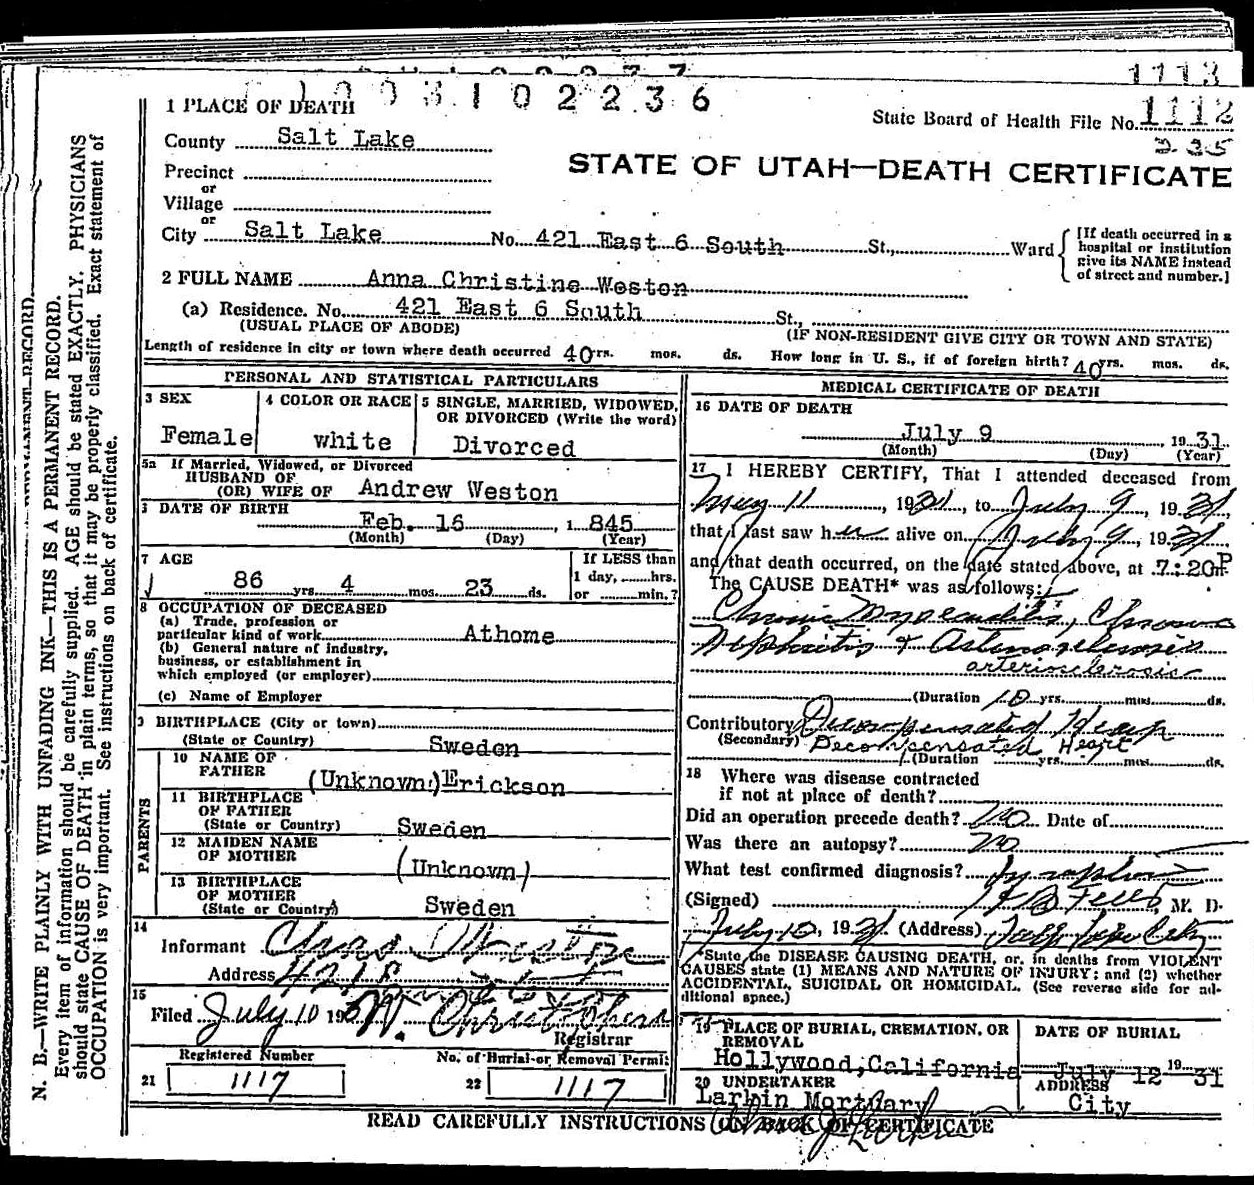 1113
1003102236
1 PLACE OF DEATH
State Board of Health File No. 1112
235
County Salt Lake
STATE OF UTAH—DEATH CERTIFICATE
Precinct
or
Village
or
City Salt Lake No. 421 East 6 South St., Ward
[If death occurred in a
hospital or institution
give its NAME instead
of street and number.]
2 FULL NAME Anna Christine Weston
(a) Residence. No. 421 East 6 South St.,
(USUAL PLACE OF ABODE) (IF NON-RESIDENT GIVE CITY OR TOWN AND STATE)
Length of residence in city or town where death occurred 40 yrs. mos. ds. How long in U. S., if of foreign birth? 40 yrs. mos. ds.
PERSONAL AND STATISTICAL PARTICULARS
3 SEX
Female
4 COLOR OR RACE
white
5 SINGLE, MARRIED, WIDOWED,
OR DIVORCED (Write the word)
Divorced
5a If Married, Widowed, or Divorced
HUSBAND OF
(OR) WIFE OF Andrew Weston
DATE OF BIRTH
Feb. 16, 1845
(Month) (Day) (Year)
7 AGE
86 yrs. 4 mos. 23 ds.
If LESS than
1 day, hrs.
or min.?
8 OCCUPATION OF DECEASED
(a) Trade, profession or
particular kind of work Athome
(b) General nature of industry,
business, or establishment in
which employed (or employer)
(c) Name of Employer
9 BIRTHPLACE (City or town)
(State or Country) Sweden
PARENTS
10 NAME OF
FATHER (Unknown) Erickson
11 BIRTHPLACE
OF FATHER
(State or Country) Sweden
12 MAIDEN NAME
OF MOTHER (Unknown)
13 BIRTHPLACE
OF MOTHER
(State or Country) Sweden
14
Informant
Address
15
Filed July 10 193
Registrar
Registered Number
21 1117
No. of Burial or Removal Permit
22 1117
MEDICAL CERTIFICATE OF DEATH
16 DATE OF DEATH
July 9, 1931
(Month) (Day) (Year)
17 I HEREBY CERTIFY, That I attended deceased from
May 11, 1931, to July 9, 1931,
that I last saw her alive on July 9, 1931
and that death occurred, on the date stated above, at 7:20 P m
The CAUSE DEATH* was as follows:
Chronic Myocarditis, Chronic
Nephritis & Arteriosclerosis
arteriosclerosis
(Duration 10 yrs. mos. ds.
Contributory Decompensated Heart
(Secondary) Decompensated Heart
(Duration yrs. mos. ds.
18 Where was disease contracted
if not at place of death?
Did an operation precede death? no Date of
Was there an autopsy? no
What test confirmed diagnosis?
(Signed) M. D.
July 10, 1931 (Address) Salt Lake City
*State the DISEASE CAUSING DEATH, or, in deaths from VIOLENT
CAUSES state (1) MEANS AND NATURE OF INJURY; and (2) whether
ACCIDENTAL, SUICIDAL OR HOMICIDAL. (See reverse side for ad-
ditional space.)
19 PLACE OF BURIAL, CREMATION, OR
REMOVAL
Hollywood, California
DATE OF BURIAL
July 12 1931
20 UNDERTAKER
Larkin Mortuary
ADDRESS
City
READ CAREFULLY INSTRUCTIONS ON BACK OF CERTIFICATE
N. B.—WRITE PLAINLY WITH UNFADING INK—THIS IS A PERMANENT RECORD.
Every item of information should be carefully supplied. AGE should be stated EXACTLY. PHYSICIANS
should state CAUSE OF DEATH in plain terms, so that it may be properly classified. Exact statement of
OCCUPATION is very important. See instructions on back of certificate.